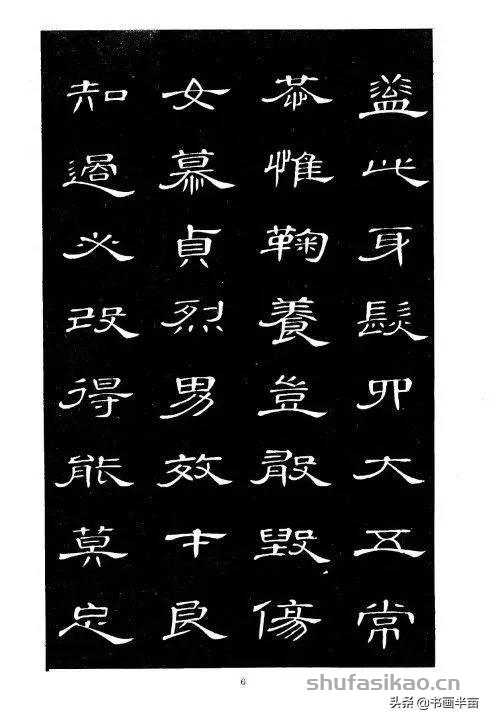 蓋此身髮四大五常
恭惟鞠養豈敢毀傷
女慕貞烈男效才良
知過必改得能莫忘
6
shufasikao.cn
头条 @书画半亩